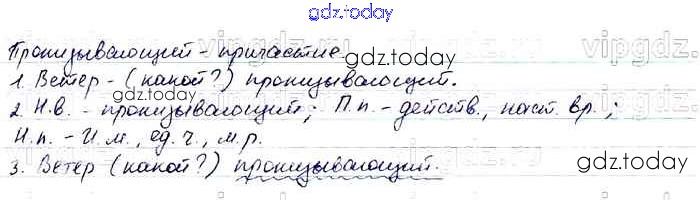 gdz.today
Пронизывающий - причастие
gdz.today
vipgdz.
1. Ветер - (какой?) пронизывающий.
gdz.today
2. Н.в. - пронизывающий; П.п. - действ., наст. вр.;
Н.п. - И.п., ед.ч., м.р.
gdz.today
3. Ветер (какой?) пронизывающий.
gdz.today